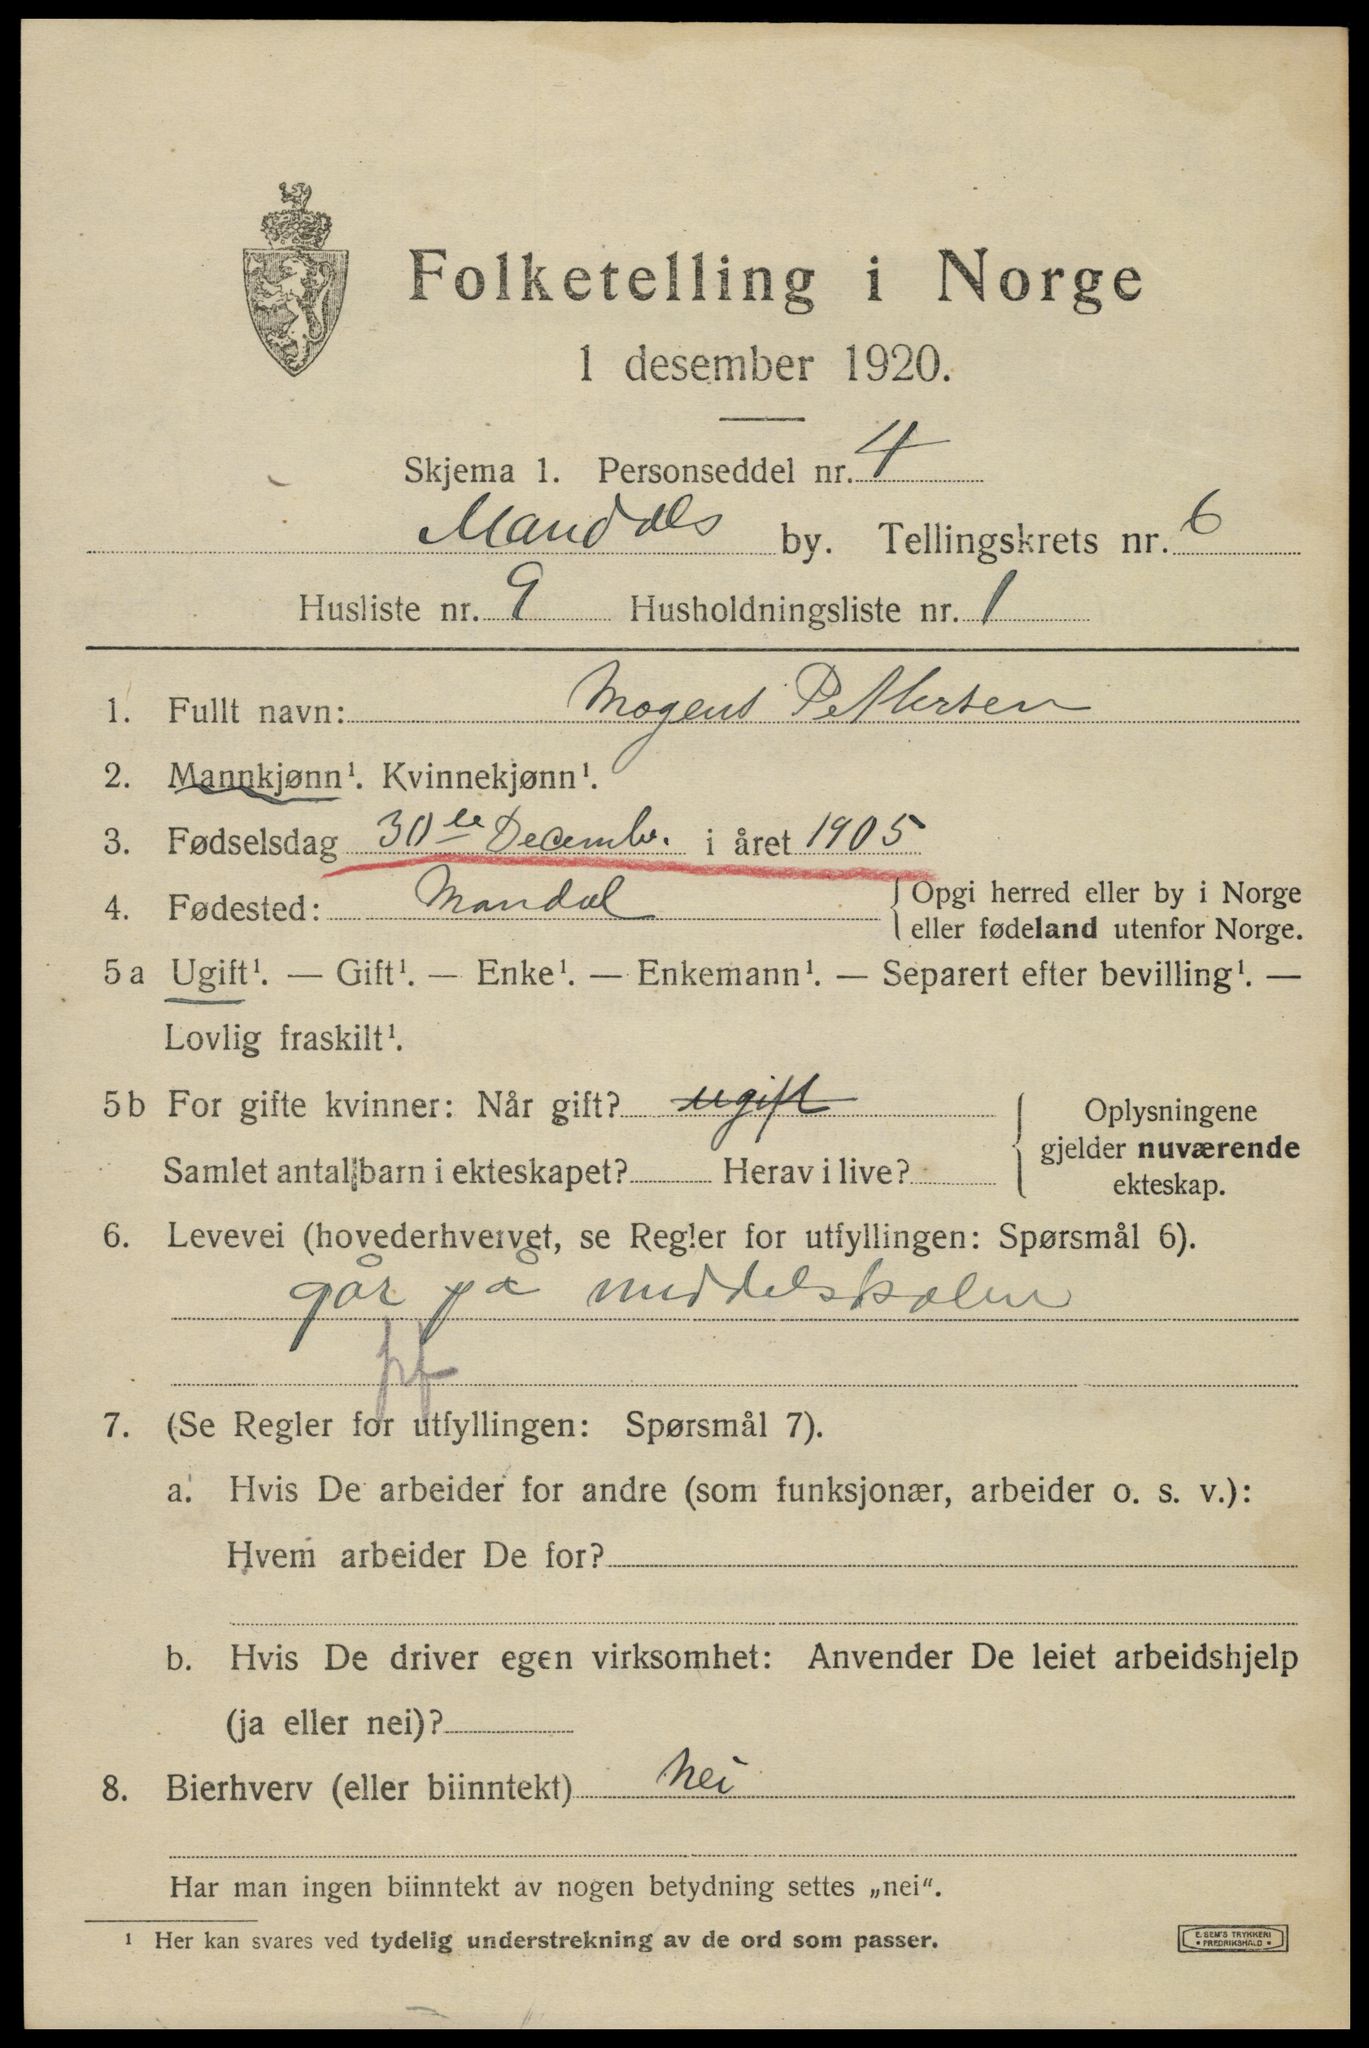 Folketelling i Norge
1 desember 1920.
Skjema 1. Personseddel nr. 4
Mandals by. Tellingskrets nr. 6
Husliste nr. 9 Husholdningsliste nr. 1
1. Fullt navn: Mogens Pettersen
2. Mannkjønn¹. Kvinnekjønn¹.
3. Fødselsdag 30te Decembr. i året 1905
4. Fødested: Mandal { Opgi herred eller by i Norge
eller fødeland utenfor Norge.
5a Ugift¹. — Gift¹. — Enke¹. — Enkemann¹. — Separert efter bevilling¹. —
Lovlig fraskilt¹.
5b For gifte kvinner: Når gift? ugift
Samlet antal barn i ekteskapet? Herav i live?
{ Oplysningene
gjelder nuværende
ekteskap.
6. Levevei (hovederhvervet, se Regler for utfyllingen: Spørsmål 6).
går på middelskolen
pf
7. (Se Regler for utfyllingen: Spørsmål 7).
a. Hvis De arbeider for andre (som funksjonær, arbeider o. s. v.):
Hvem arbeider De for?
b. Hvis De driver egen virksomhet: Anvender De leiet arbeidshjelp
(ja eller nei)?
8. Bierhverv (eller biinntekt) Nei
Har man ingen biinntekt av nogen betydning settes „nei“.
¹ Her kan svares ved tydelig understrekning av de ord som passer.
E. SEM'S TRYKKERI
• FREDRIKSHALD •